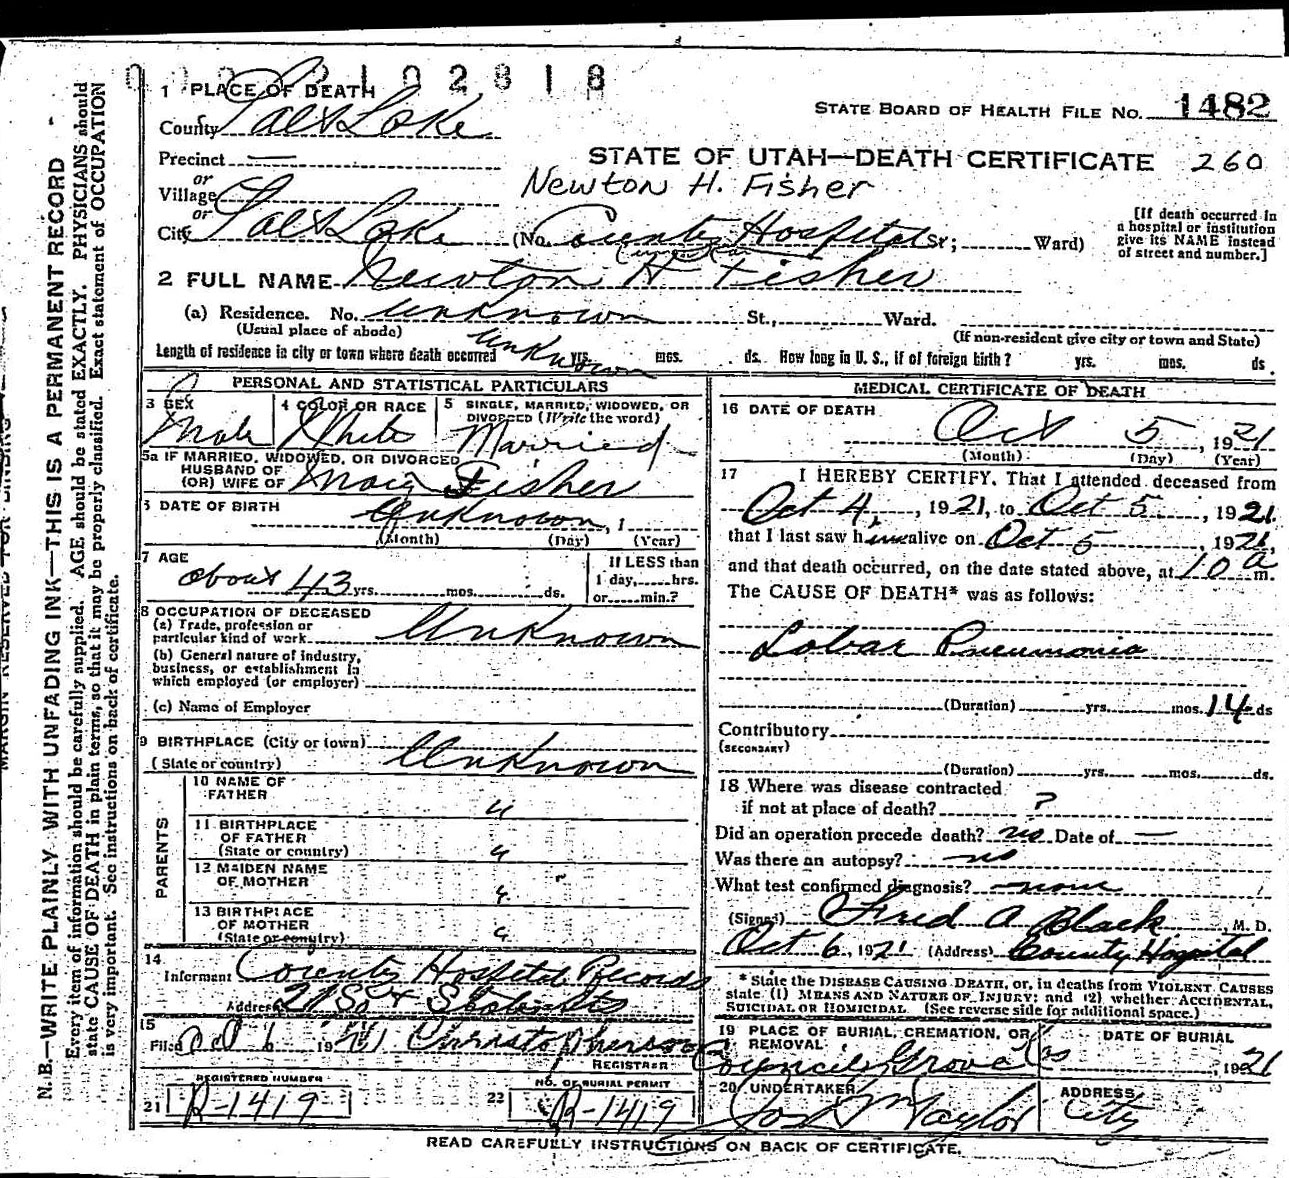 2102818
1 PLACE OF DEATH
STATE BOARD OF HEALTH FILE NO. 1482
County Salt Lake
Precinct —
STATE OF UTAH—DEATH CERTIFICATE 260
or
Newton H. Fisher
Village
or
City Salt Lake (No. County Hospital St; Ward)
[If death occurred in
a hospital or institution
give its NAME instead
of street and number.]
2 FULL NAME Newton H Fisher
(a) Residence. No. Unknown St., Ward.
(Usual place of abode)
(If non-resident give city or town and State)
Length of residence in city or town where death occurred Unknown yrs. mos. ds. How long in U. S., if of foreign birth? yrs. mos. ds.
PERSONAL AND STATISTICAL PARTICULARS
3 SEX
Male
4 COLOR OR RACE
White
5 SINGLE, MARRIED, WIDOWED, OR
DIVORCED (Write the word)
Married
5a IF MARRIED, WIDOWED, OR DIVORCED
HUSBAND OF
(OR) WIFE OF Fisher
6 DATE OF BIRTH
Unknown, 1
(Month) (Day) (Year)
7 AGE
about 43 yrs. mos. ds.
If LESS than
1 day, hrs.
or min.?
8 OCCUPATION OF DECEASED
(a) Trade, profession or
particular kind of work Unknown
(b) General nature of industry,
business, or establishment in
which employed (or employer)
(c) Name of Employer
9 BIRTHPLACE (City or town)
(State or country) Unknown
PARENTS
10 NAME OF
FATHER
u
11 BIRTHPLACE
OF FATHER
(State or country) u
12 MAIDEN NAME
OF MOTHER
u
13 BIRTHPLACE
OF MOTHER
(State or country) u
14
Informant County Hospital Records
Address 21 So & State Sts
15
Filed Oct 6 1921 Christopherson
REGISTRAR
REGISTERED NUMBER
21 R-1419
NO. OF BURIAL PERMIT
22 R-1419
MEDICAL CERTIFICATE OF DEATH
16 DATE OF DEATH
Oct 5, 1921
(Month) (Day) (Year)
17 I HEREBY CERTIFY, That I attended deceased from
Oct 4, 1921, to Oct 5, 1921.
that I last saw him alive on Oct 5, 1921,
and that death occurred, on the date stated above, at 10 a m.
The CAUSE OF DEATH* was as follows:
Lobar Pneumonia
(Duration) yrs. mos. 14 ds
Contributory
(SECONDARY)
(Duration) yrs. mos. ds.
18 Where was disease contracted
if not at place of death? ?
Did an operation precede death? no Date of —
Was there an autopsy? no
What test confirmed diagnosis? none
(Signed) Fred A Black M. D.
Oct 6, 1921 (Address) County Hospital
* State the DISEASE CAUSING DEATH, or, in deaths from VIOLENT CAUSES
state (1) MEANS AND NATURE OF INJURY; and (2) whether ACCIDENTAL,
SUICIDAL OR HOMICIDAL. (See reverse side for additional space.)
19 PLACE OF BURIAL, CREMATION, OR
REMOVAL
Council Grove Kas
DATE OF BURIAL
, 1921
20 UNDERTAKER
Jos Wm Taylor
ADDRESS
City
READ CAREFULLY INSTRUCTIONS ON BACK OF CERTIFICATE.
N. B.—WRITE PLAINLY WITH UNFADING INK—THIS IS A PERMANENT RECORD
Every item of information should be carefully supplied. AGE should be stated EXACTLY. PHYSICIANS should
state CAUSE OF DEATH in plain terms, so that it may be properly classified. Exact statement of OCCUPATION
is very important. See instructions on back of certificate.